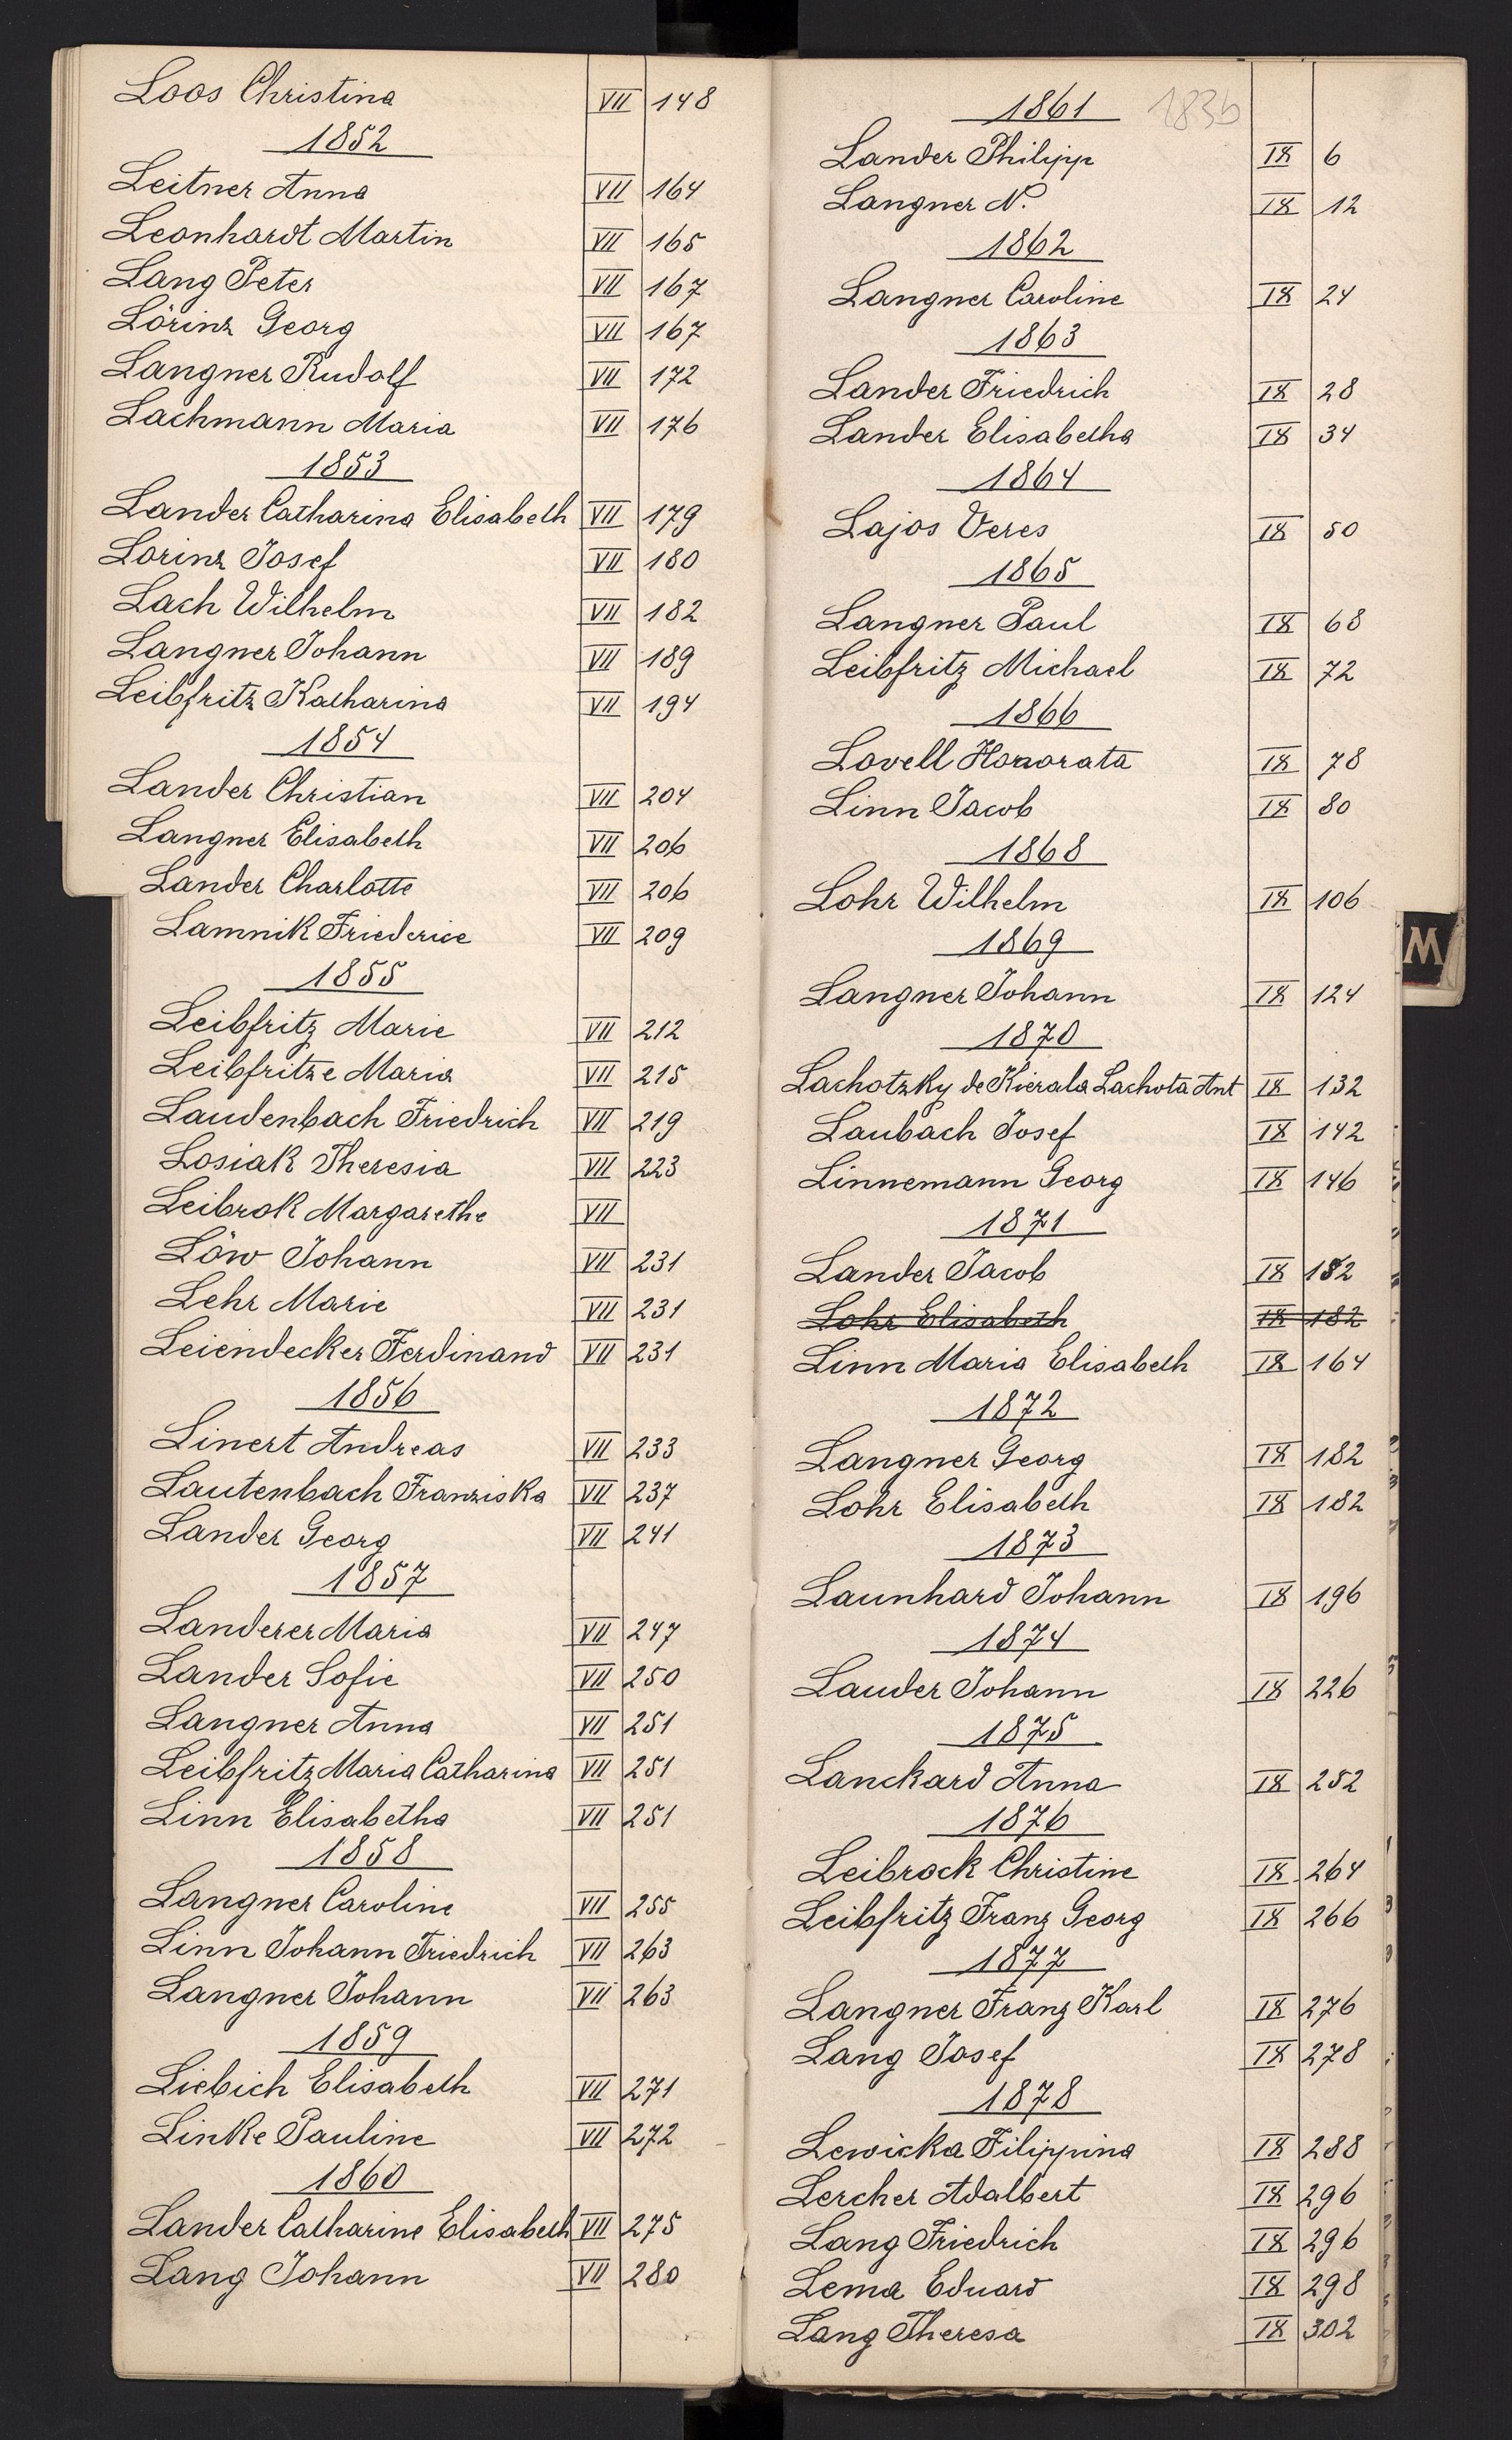 Loos Christina VII 148
1852
Leitner Anna VII 164
Leonhardt Martin VII 165
Lang Peter VII 167
Lörinz Georg VII 167
Langner Rudolf VII 172
Lachmann Maria VII 176
1853
Lander Catharina Elisabeth VII 179
Lorinz Josef VII 180
Lach Wilhelm VII 182
Langner Johann VII 189
Leibfritz Katharina VII 194
1854
Lander Christian VII 204
Langner Elisabeth VII 206
Lander Charlotte VII 206
Lamnik Friederice VII 209
1855
Leibfritz Marie VII 212
Leibfritze Maria VII 215
Laudenbach Friedrich VII 219
Losiak Theresia VII 223
Leibrok Margarethe VII
Löw Johann VII 231
Lehr Marie VII 231
Leiendecker Ferdinand VII 231
1856
Linert Andreas VII 233
Lautenbach Franziska VII 237
Lander Georg VII 241
1857
Landerer Maria VII 247
Lander Sofie VII 250
Langner Anna VII 251
Leibfritz Maria Catharina VII 251
Linn Elisabetha VII 251
1858
Langner Caroline VII 255
Linn Johann Friedrich VII 263
Langner Johann VII 263
1859
Liebich Elisabeth VII 271
Linke Pauline VII 272
1860
Lander Catharine Elisabeth VII 275
Lang Johann VII 280
1861 1836
Lander Philipp IX 6
Langner N. IX 12
1862
Langner Caroline IX 24
1863
Lander Friedrich IX 28
Lander Elisabetha IX 34
1864
Lajos Veres IX 50
1865
Langner Paul IX 68
Leibfritz Michael IX 72
1866
Lovell Honorata IX 78
Linn Jacob IX 80
1868
Lohr Wilhelm IX 106
1869
M
Langner Johann IX 124
1870
Lachotzky de Kierala Lachota Ant IX 132
Laubach Josef IX 142
Linnemann Georg IX 146
1871
Lander Jacob IX 152
Lohr Elisabeth IX 182
Linn Maria Elisabeth IX 164
1872
Langner Georg IX 182
Lohr Elisabeth IX 182
1873
Launhard Johann IX 196
1874
Lauder Johann IX 226
1875
Lanckard Anna IX 252
1876
Leibrock Christine IX 264
Leibfritz Franz Georg IX 266
1877
Langner Franz Karl IX 276
Lang Josef IX 278
1878
Lewicka Filippina IX 288
Lercher Adalbert IX 296
Lang Friedrich IX 296
Lema Eduard IX 298
Lang Theresa IX 302